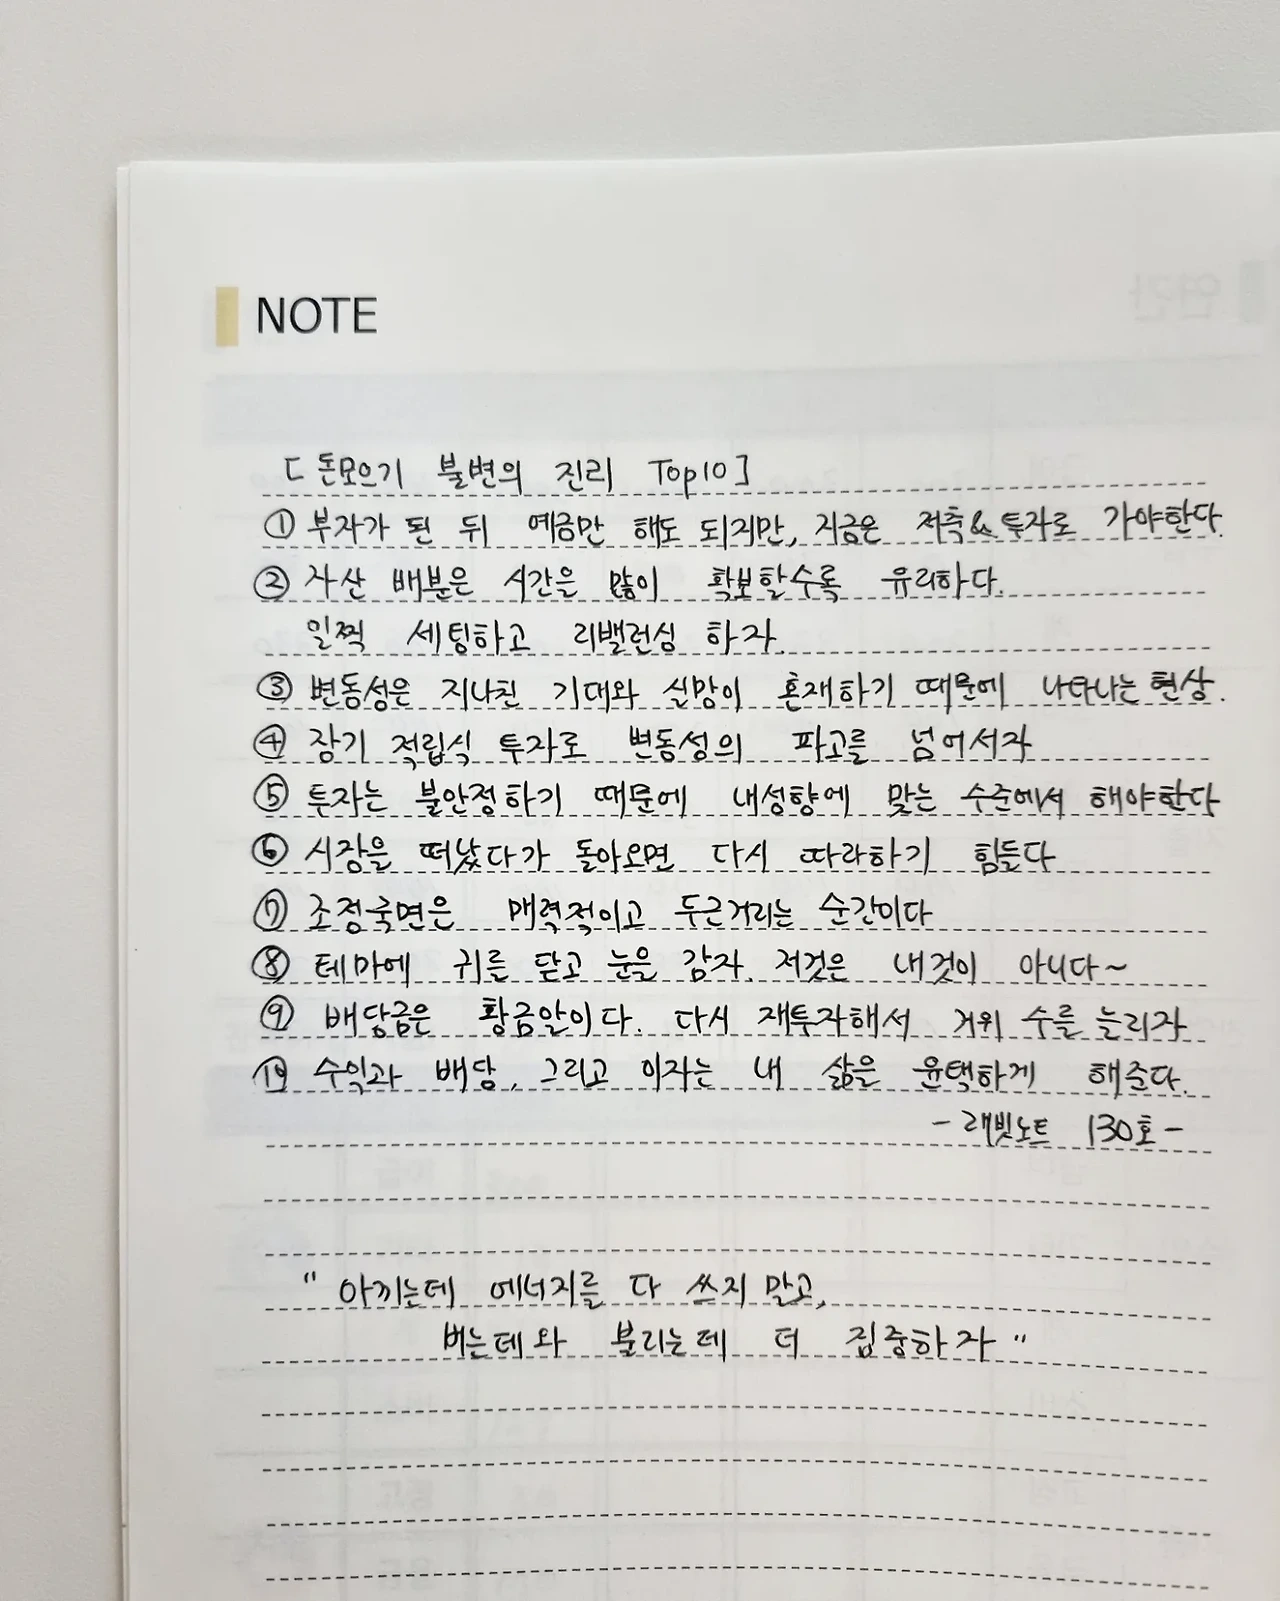 NOTE
[돈모으기 불변의 진리 Top10]
① 부자가 된 뒤 예금만 해도 되지만, 지금은 저축&투자로 가야한다.
② 자산 배분은 시간을 많이 확보할수록 유리하다.
일찍 세팅하고 리밸런싱 하자.
③ 변동성은 지나친 기대와 실망이 혼재하기 때문에 나타나는 현상.
④ 장기 적립식 투자로 변동성의 파고를 넘어서자
⑤ 투자는 불안정하기 때문에 내성향에 맞는 수준에서 해야한다
⑥ 시장을 떠났다가 돌아오면 다시 따라하기 힘들다
⑦ 조정국면은 매력적이고 두근거리는 순간이다
⑧ 테마에 귀를 닫고 눈을 감자. 저것은 내것이 아니다~
⑨ 배당금은 황금알이다. 다시 재투자해서 거위 수를 늘리자
⑩ 수익과 배당, 그리고 이자는 내 삶을 윤택하게 해준다.
- 래빗노트 130호 -
" 아끼는데 에너지를 다 쓰지 말고,
버는데와 불리는데 더 집중하자 "